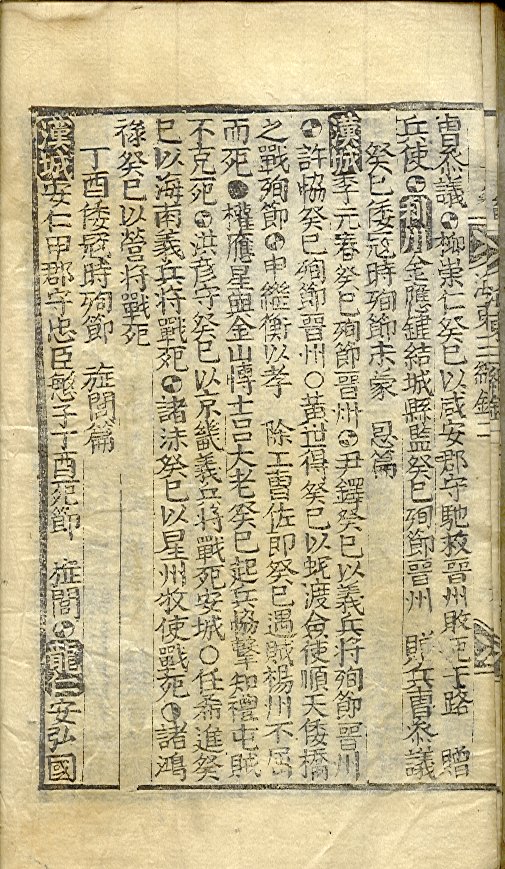 曺叅議 柳崇仁癸巳以咸安郡守馳救晉州敗死于路 贈
兵使 利川 金應鍵結城縣監癸巳殉節晉州 贈兵曺叅議
癸巳倭冦時殉節未蒙 恩篇
漢城 李元春癸巳殉節晉州 尹鐸癸巳以義兵將殉節晉州
許恊癸巳殉節晉州○黃世得癸巳以蛇渡僉使順天倭橋
之戰殉節 申繼衡以孝 除工曺佐郎癸巳遇賊楊州不屈
而死 權應星與金山博士呂大老癸巳起兵恊擊知禮屯賊
不克死 洪彦守癸巳以京畿義兵將戰死安城○任希進癸
巳以海南義兵將戰死 諸沫癸巳以星州牧使戰死 諸鴻
祿癸巳以營將戰死
丁酉倭冦時殉節 旌閭篇
漢城 安仁甲郡守忠臣慜子丁酉死節 旌閭 龍仁 安弘國